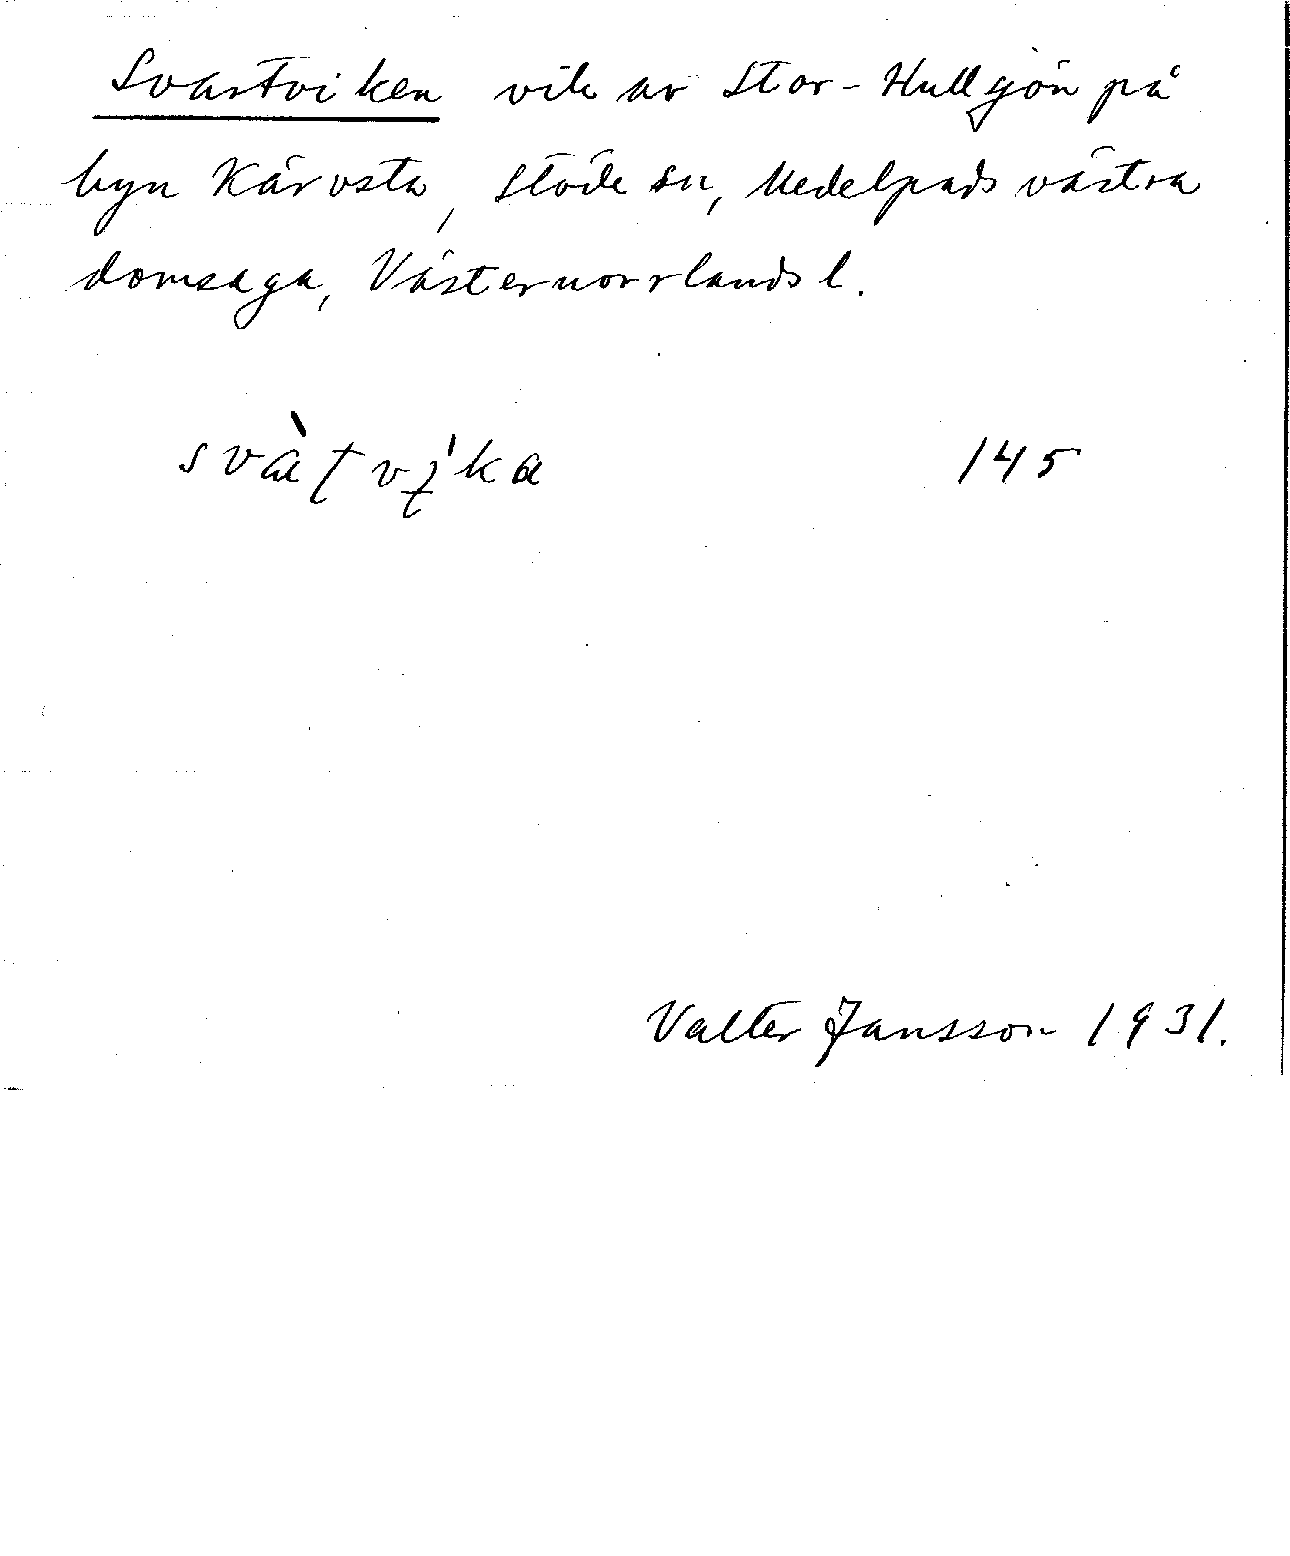 Svartviken vik av Stor-Hullsjön på
byn Kärvsta, Stöde sn, Medelpads västra
domsaga, Västernorrlands l.
145
Valter Jansson 1931.